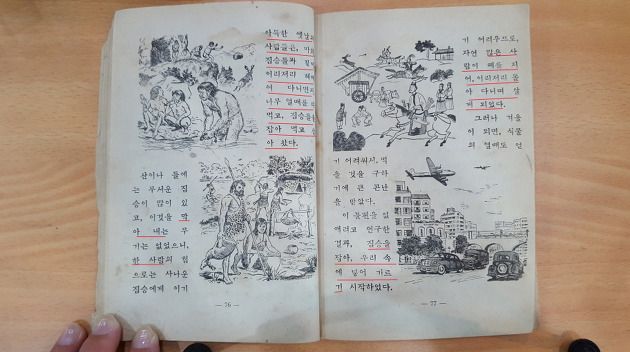 아득한 옛날
사람들은,
짐승들과
어리저리 헤
어 다니면
나무 열매를
먹고, 짐승을
잡아 먹고
아 왔다.
산이나 들에
는 무서운 짐
승이 많이 있
고, 이것을 막
아 내는 무
기는 없었으니,
한 사람의 힘
으로는 사나운
짐승에게 이기
— 76 —
기 어려우므로,
자연 많은 사
람이 떼를 지
어, 이리저리 몰
아 다니며 살
게 되었다.
그러나 겨울
이 되면, 식물
의 열매도 얻
기 어려워서, 먹
을 것을 구하
기에 큰 곤난
을 받았다.
이 불편을 없
애려고 연구한
결과, 짐승을
잡아, 우리 속
에 넣어 기르
기 시작하였다.
— 77 —